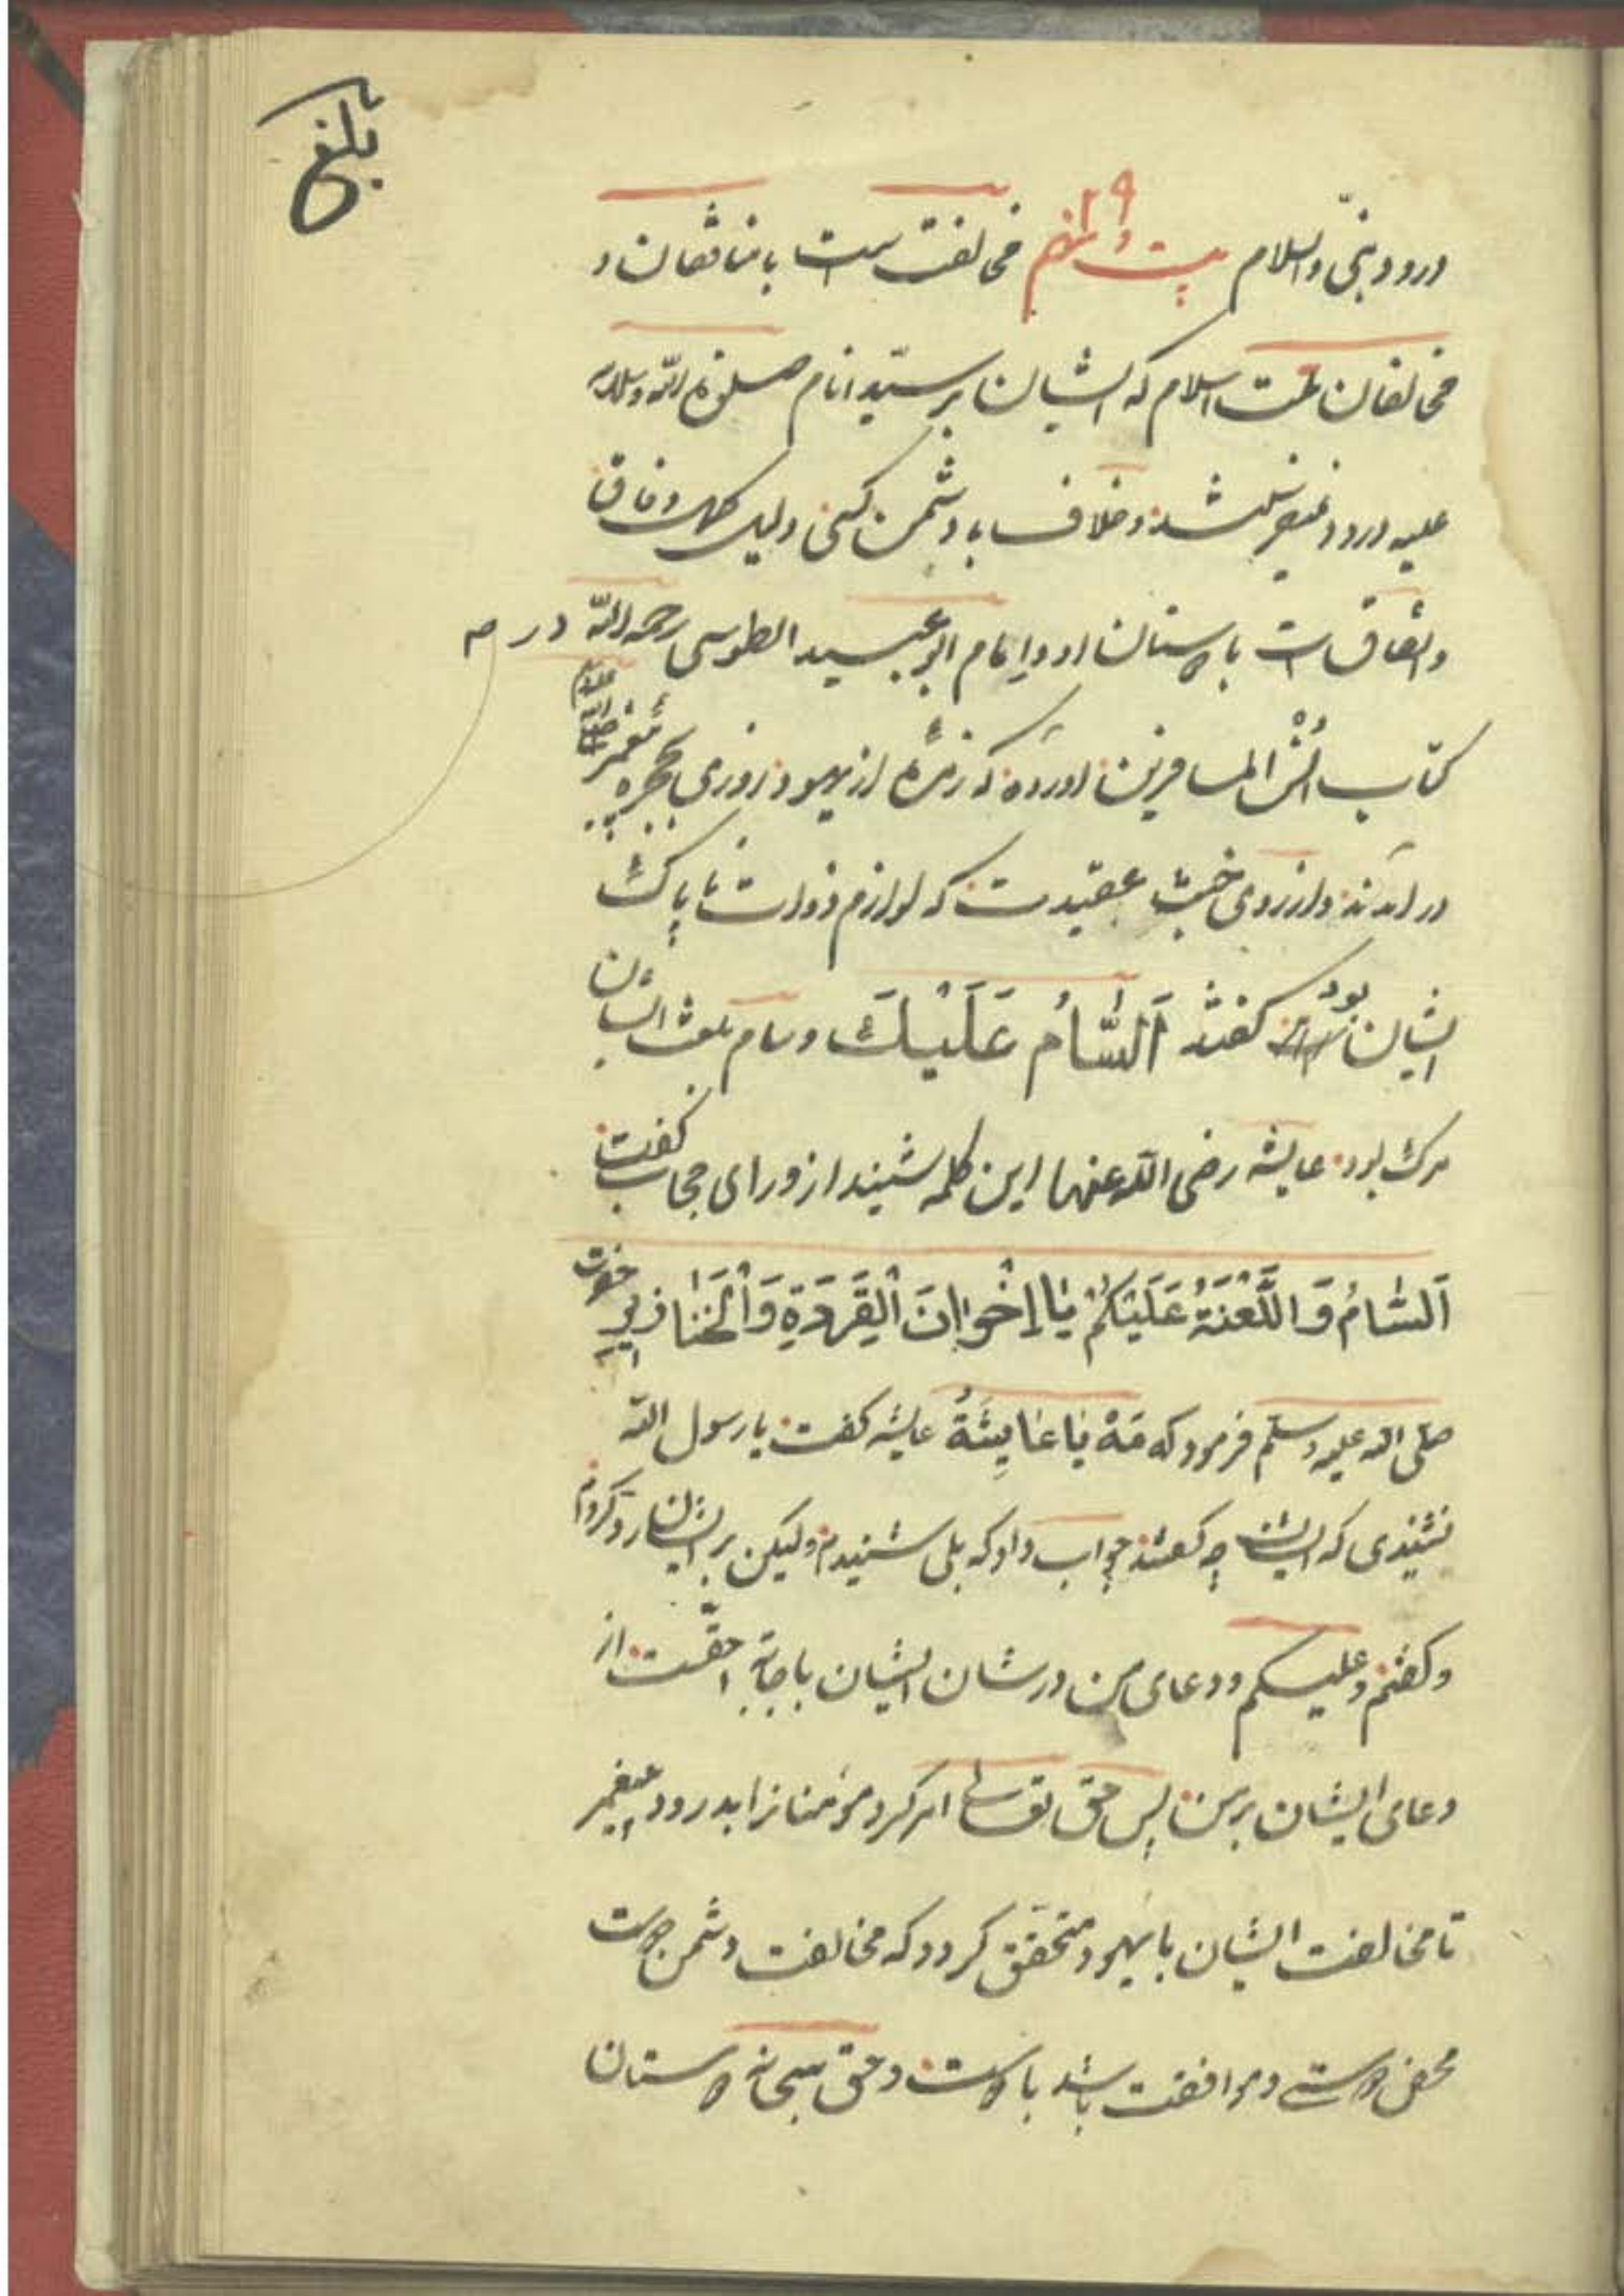 بلغ
درود بنی و السلام بیست و نهم ۲۹ مخالفت است با منافقان و
مخالفان ملت اسلام که ایشان بر سیّد انام صلوة الله و سلامه
علیه درود نمیفرستند و خلاف با دشمن کنی دلیل کمال وفاق
و اتفاق است با دوستان او و امام ابو عبید الطوسی رحمه الله در
کتاب اُنْس المسافرین آورده که زمرهٔ از یهود روزی بحجره پیغمبر صلی الله علیه
در آمدند و از روی خبث عقیدت که لوازم ذوات ناپاک
ایشان بود گفتند اَلسَّامُ عَلَیْكَ و سام بلغت ایشان
مرگ بود عایشه رضی الله عنها این کلمه شنید از ورای حجاب گفت
اَلسَّامُ وَ اللَّعْنَةُ عَلَیْکُمْ یٰا اِخْوانَ الْقِرَدَةِ وَ الْخَنٰازِیرِ حضرت
صلی الله علیه و سلم فرمود که مَهْ یٰا عٰایِشَةُ عایشه گفت یا رسول الله
نشنیدی که ایشان چه گفتند جواب داد که بلی شنیدم ولیکن بر ایشان رد کردم
و گفتم و علیکم و دعای من در شان ایشان باجابة احقّست از
دعای ایشان بر من پس حق تعالی امر کرد مؤمنانرا بدرود پیغمبر
تا مخالفت ایشان با یهود متحقق کردد که مخالفت دشمن دوست
محض دوستی و موافقت باشد با دوست و حق سبحانه دوستان